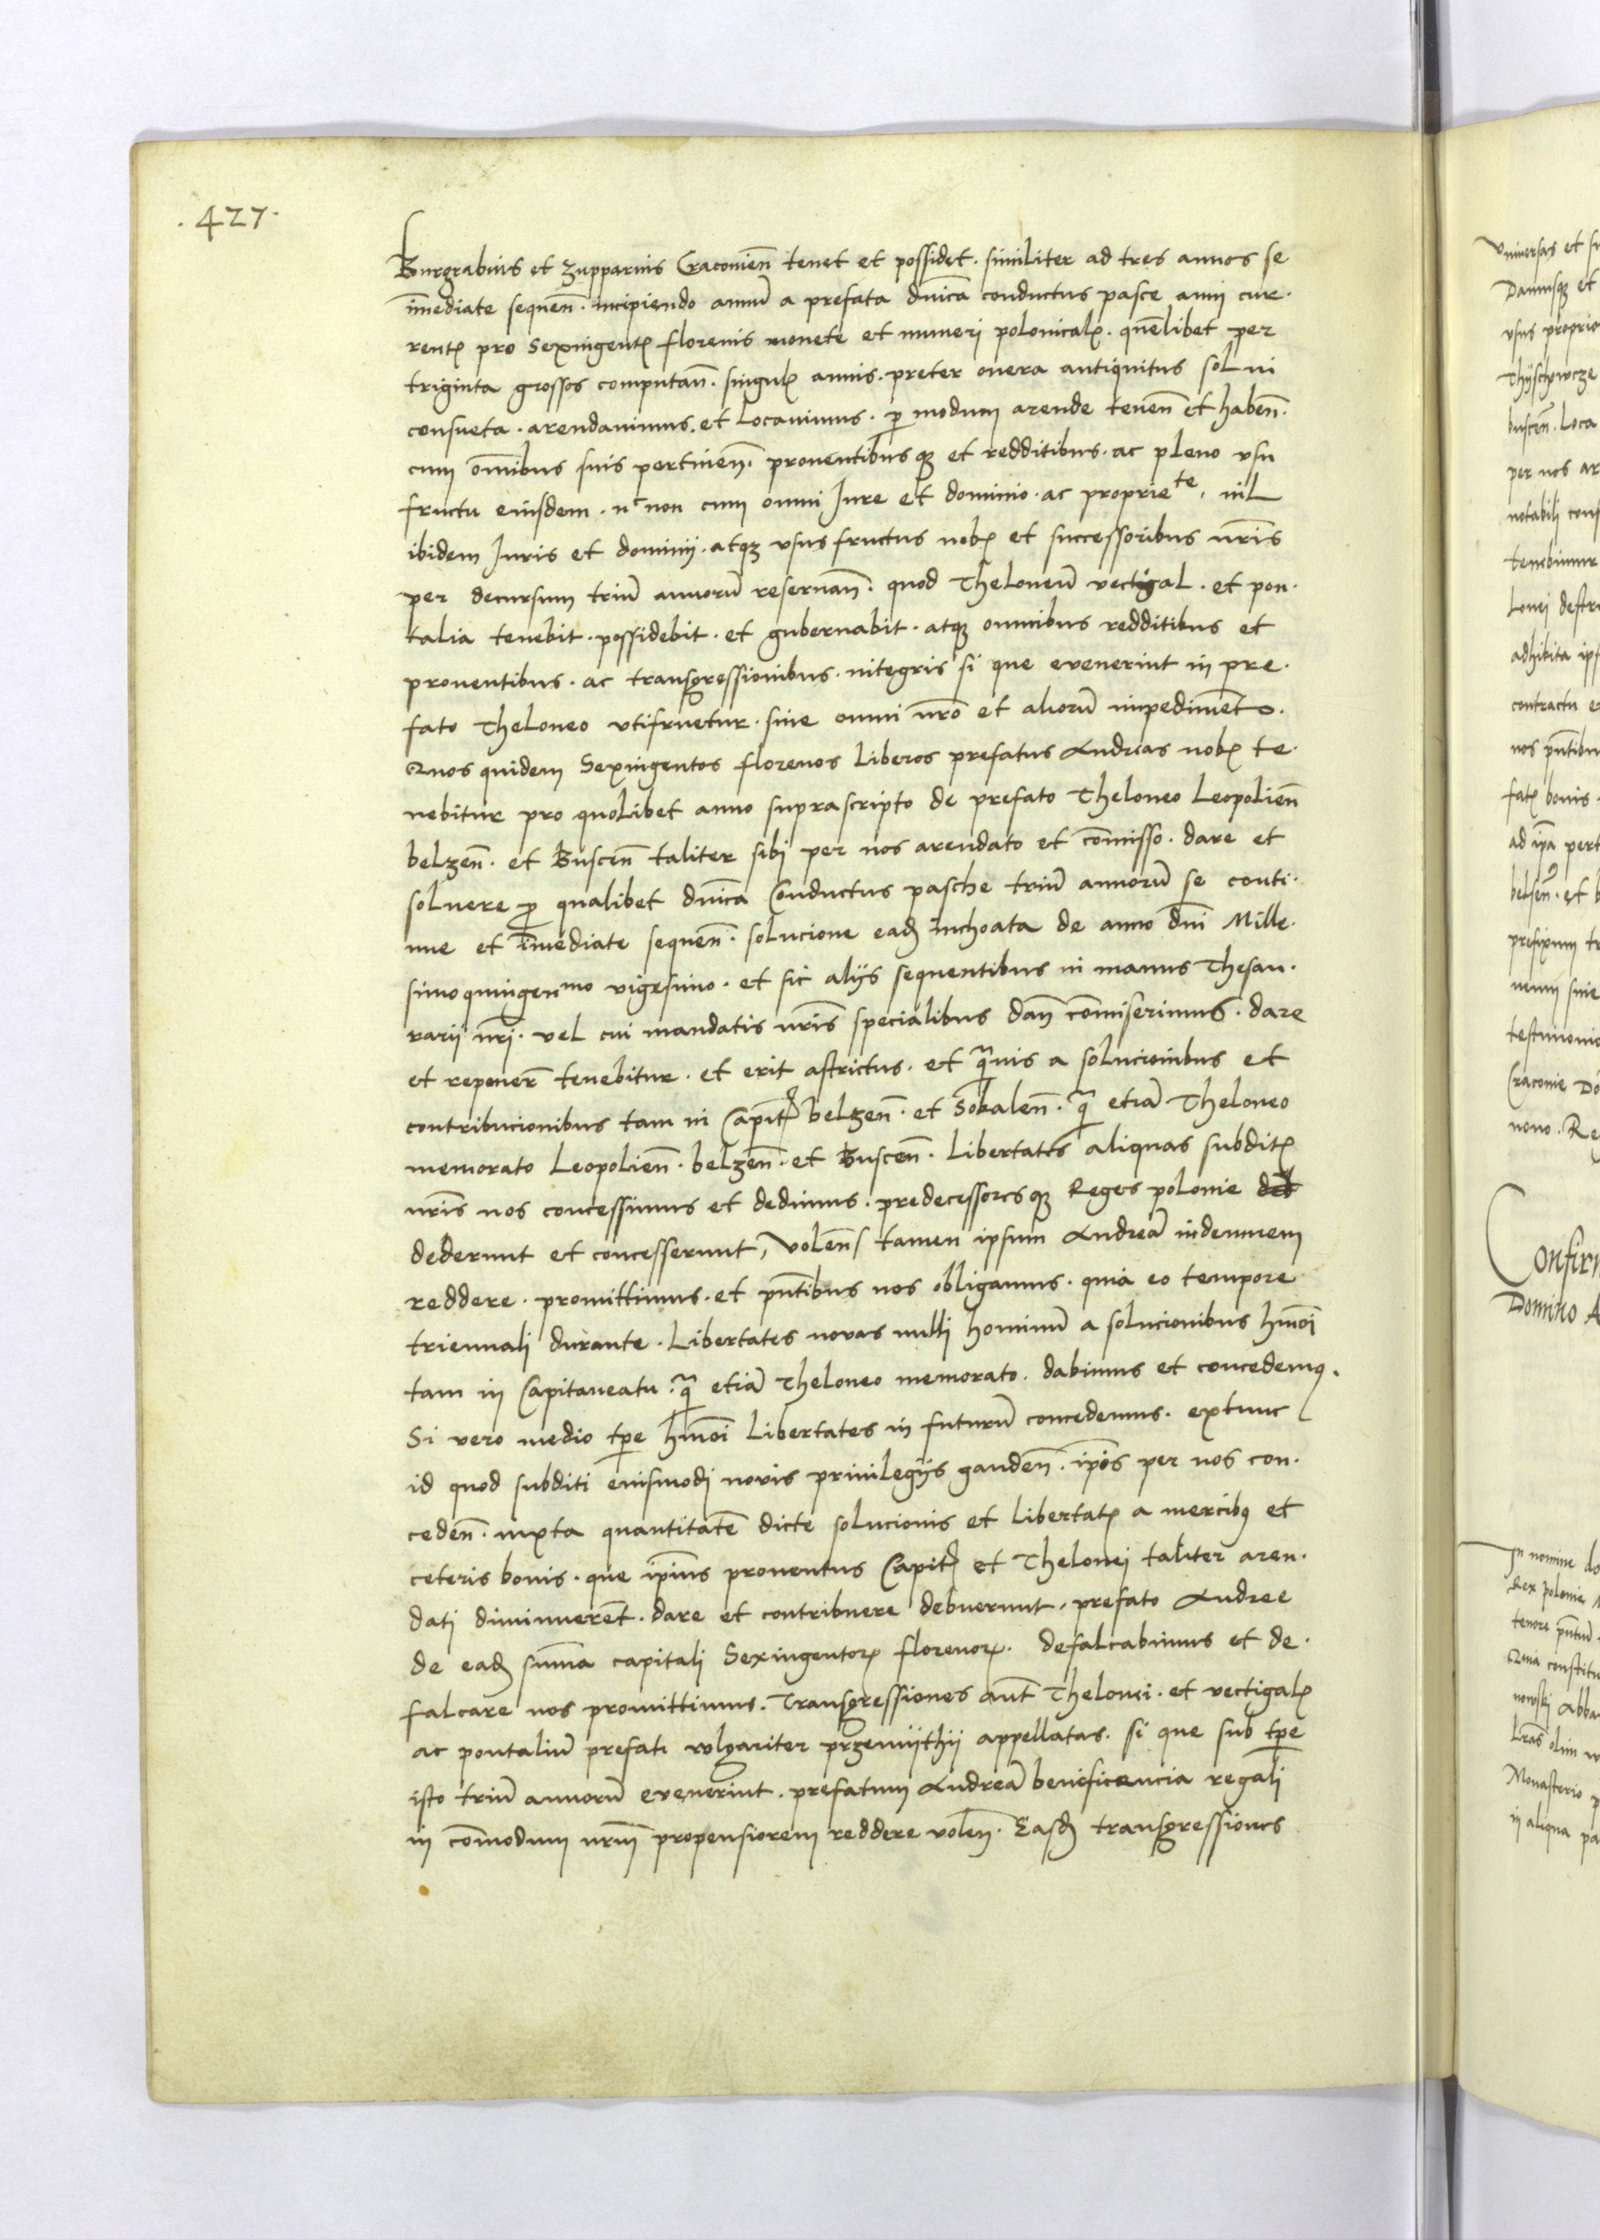 .427.
Burgrabius et Zupparius Cracovien̄ tenet et possidet. similiter ad tres annos se
īmediate sequen̄. incipiendo annū a prefata dn̄ica conductus pasce anni cur.
rentꝭ pro Sexingentꝭ florenis monete et numeri polonicalꝭ. quēlibet per
triginta grossos computan̄. singulꝭ annis. preter onera antiquitus solvi
consueta. arendavimus. et Locavimus. ꝑ modum arende tenen̄ et haben̄.
cum om̄ibus suis pertinen̄. proventibusqꝫ et redditibus. ac pleno usu
fructu eiusdem. nᶜ non cum omni Iure et dominio. ac proprieᵗᵉ, nil
ibidem Iuris et dominij. atqꝫ ususfructus nobꝭ et successoribus nr̄is
per decursum triū annorū reservan̄. quod Theloneū vectigal. et pon.
talia tenebit. possidebit. et gubernabit. atqꝫ omnibus redditibus et
proventibus. ac transgressionibus. integris si que evenerint in pre.
fato Theloneo utifruetur. sine omni nr̄o et aliorū impedimēto.
Quos quidem Sexingentos florenos Liberos prefatus Andreas nobꝭ te.
nebitur pro quolibet anno suprascripto de prefato Theloneo Leopolien̄
belzen̄. et Buscen̄ taliter sibi per nos arendato et com̄isso. dare et
solvere ꝓ qualibet dn̄ica Conductus pasche triū annorū se conti.
nue et īmediate sequen̄. solucione eadꝫ inchoata de anno dn̄i Mille.
simo quingenᵐᵒ vigesimo. et sic alijs sequentibus in manus Thesau.
rarii nr̄i. vel cui mandatis nr̄is specialibus dan̄ com̄iserimus. dare
et reponerꝭ tenebitur. et erit astrictus. et q̄vis a solucionibus et
contribucionibus tam in Capitꝭ belzen̄. et Sokalen̄. q̄ etiā Theloneo
memorato Leopolien̄. belzen̄. et Buscen̄. Libertates aliquas subditꝭ
nr̄is nos concessimus et dedimus. predecessoresqꝫ Reges polonie
dederunt et concesserunt, Volen̄ tamen ipsum Andreā indemnem
reddere. promittimus. et pn̄tibus nos obligamus. quia eo tempore
triennali durante. Libertates novas nulli hominū a solucionibus hmōi
tam in Capitaneatu. q̄ etiā Theloneo memorato. dabimus et concedemꝰ.
Si vero medio tp̄e hmōi Libertates in futurū concedemus. extunc
id quod subditi eiusmodi novis privilegijs gauden̄. ip̄os per nos con.
ceden̄. iuxta quantitatē dicte solucionis et libertatꝭ a mercibꝰ et
ceteris bonis. que ip̄ius proventus Capitꝭ et Thelonei taliter aren.
dati diminuerēt. dare et contribuere debuerunt. prefato Andree
de eadꝫ sum̄a capitali Sexingentorꝭ florenorꝭ. defalcabimus et de.
falcare nos promittimus. Transgressiones aūt Thelonei. et vectigalꝭ
ac pontaliū prefati vulgariter przemijthij appellatas. si que sub tp̄e
isto triū annorū evenerint. prefatum Andreā beneficencia regali
in com̄odum nr̄m̄ propensiorem reddere volen̄. Easdꝫ transgressiones